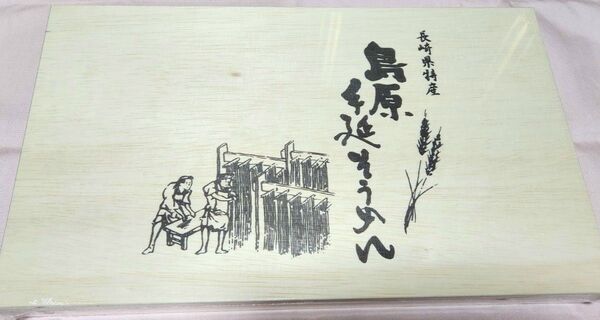 長崎県特産
島原
手延そうめん